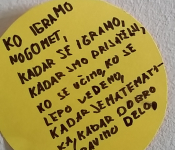 KO IGRAMO
NOGOMET,
KADAR SE IGRAMO,
KADAR SMO PRISRČNI,
KO SE UČIMO, KO SE
LEPO VEDEMO,
KADAR JE MATEMATI-
KA, KADAR DOBRO
DELO